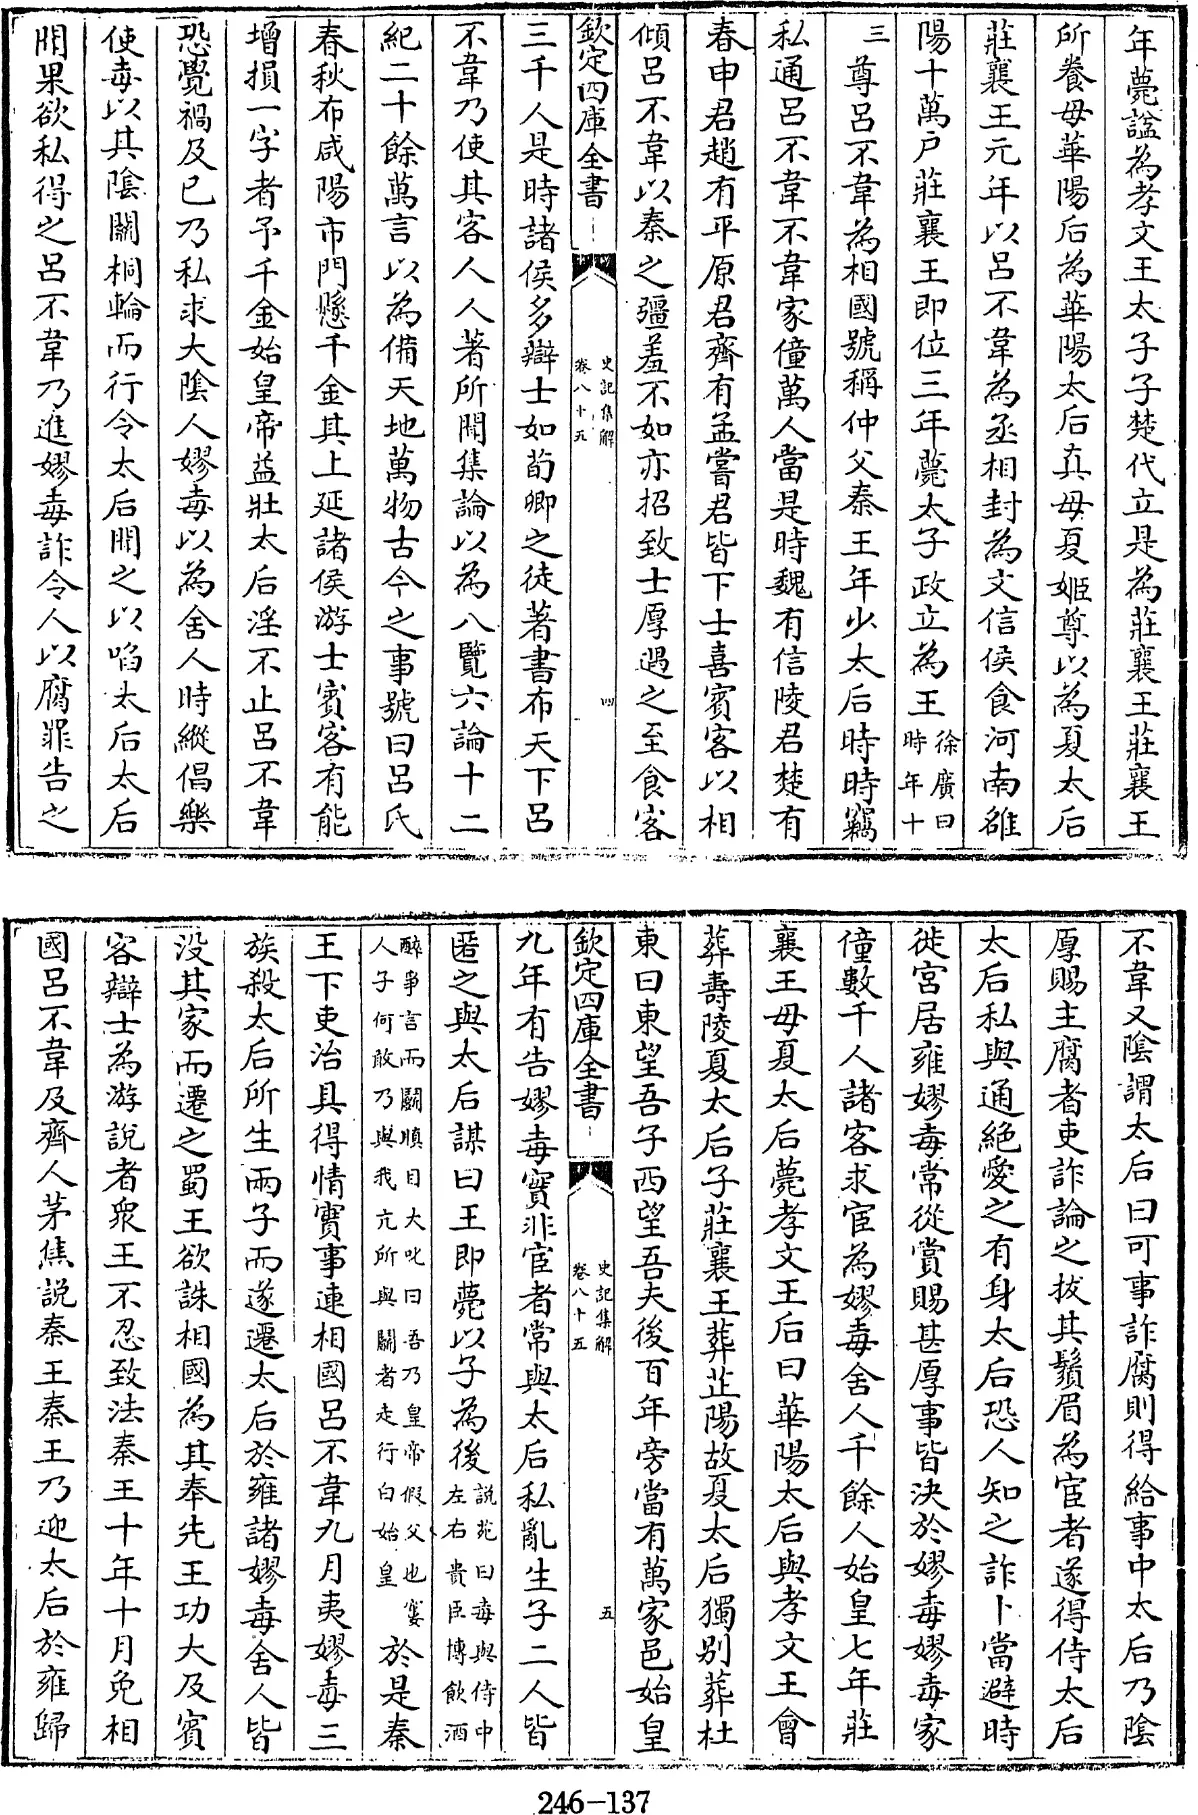 年薨諡為孝文王太子子楚代立是為莊襄王莊襄王
所養母華陽后為華陽太后真母夏姬尊以為夏太后
莊襄王元年以呂不韋為丞相封為文信侯食河南雒
陽十萬户莊襄王即位三年薨太子政立為王徐廣曰時年十
三尊呂不韋為相國號稱仲父秦王年少太后時時竊
私通呂不韋不韋家僮萬人當是時魏有信陵君楚有
春申君趙有平原君齊有孟嘗君皆下士喜賓客以相
傾呂不韋以秦之彊羞不如亦招致士厚遇之至食客
欽定四庫全書 史記集解 卷八十五 四
三千人是時諸侯多辯士如荀卿之徒著書布天下呂
不韋乃使其客人人著所聞集論以為八覽六論十二
紀二十餘萬言以為備天地萬物古今之事號曰呂氏
春秋布咸陽市門懸千金其上延諸侯游士賓客有能
增損一字者予千金始皇帝益壯太后淫不止呂不韋
恐覺禍及已乃私求大陰人嫪毐以為舍人時縱倡樂
使毐以其陰關桐輪而行令太后聞之以啗太后太后
聞果欲私得之呂不韋乃進嫪毐詐令人以腐罪告之
不韋又陰謂太后曰可事詐腐則得給事中太后乃陰
厚賜主腐者吏詐論之拔其鬚眉為宦者遂得侍太后
太后私與通絶愛之有身太后恐人知之詐卜當避時
徙宮居雍嫪毐常從賞賜甚厚事皆決於嫪毐嫪毐家
僮數千人諸客求宦為嫪毐舍人千餘人始皇七年莊
襄王母夏太后薨孝文王后曰華陽太后與孝文王會
葬壽陵夏太后子莊襄王葬芷陽故夏太后獨別葬杜
東曰東望吾子西望吾夫後百年旁當有萬家邑始皇
欽定四庫全書 史記集解 卷八十五 五
九年有告嫪毐實非宦者常與太后私亂生子二人皆
匿之與太后謀曰王即薨以子為後說苑曰毐與侍中左右貴臣博飲酒
醉爭言而鬬瞋目大叱曰吾乃皇帝假父也窶人子何敢乃與我亢所與鬬者走行白始皇於是秦
王下吏治具得情實事連相國呂不韋九月夷嫪毐三
族殺太后所生兩子而遂遷太后於雍諸嫪毐舍人皆
没其家而遷之蜀王欲誅相國為其奉先王功大及賓
客辯士為游說者衆王不忍致法秦王十年十月免相
國呂不韋及齊人茅焦說秦王秦王乃迎太后於雍歸
246-137